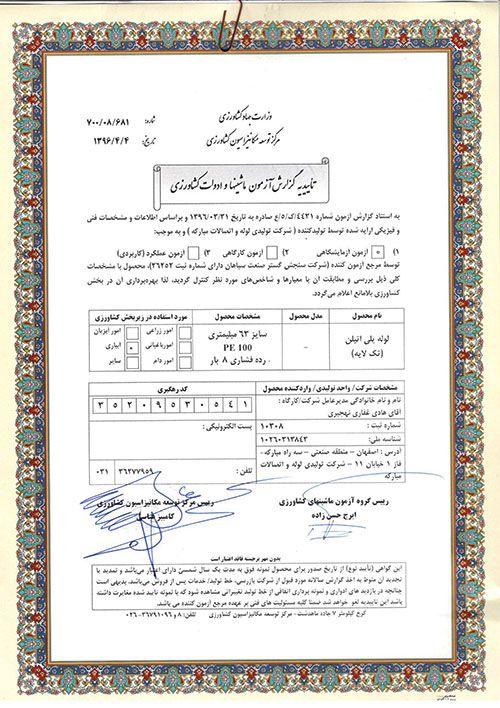 وزارت جهاد کشاورزی
مرکز توسعه مکانیزاسیون کشاورزی
شماره: ۷۰۰/۰۸/۶۸۱
تاریخ: ۱۳۹۶/۴/۴
تأییدیه گزارش آزمون ماشینها و ادوات کشاورزی
به استناد گزارش آزمون شماره ۴۴۲۱/ک/۵/ع صادره به تاریخ ۱۳۹۶/۰۲/۳۱ و براساس اطلاعات و مشخصات فنی
و فیزیکی ارایه شده توسط تولیدکننده ( شرکت تولیدی لوله و اتصالات مبارکه ) و به موجب:
۱) آزمون آزمایشگاهی ۲) آزمون کارگاهی ۳) آزمون عملکرد (کاربردی)
توسط مرجع آزمون کننده (شرکت سنجش گستر صنعت سپاهان دارای شماره ثبت ۲۶۲۵۲)، محصول با مشخصات
کلی ذیل بررسی و مطابقت آن با معیارها و شاخص‌های مورد نظر کنترل گردید، لذا بهره‌برداری آن در بخش
کشاورزی بلامانع اعلام می‌گردد.
نام محصول مدل محصول مشخصات محصول مورد استفاده در زیربخش کشاورزی
لوله پلی اتیلن
(تک لایه)
-
سایز ۶۳ میلیمتری
PE 100
رده فشاری ۸ بار
امور زراعی امور آبزیان
امور باغبانی آبیاری
امور دام سایر
مشخصات شرکت/ واحد تولیدی/ واردکننده محصول
کد رهگیری
نام و نام خانوادگی مدیرعامل شرکت/کارگاه :
آقای هادی غفاری نهجیری
۳ ۵ ۲ ۰ ۹ ۵ ۳ ۰ ۵ ۴ ۱
شماره ثبت : ۱۰۳۰۸
پست الکترونیکی :
شناسه ملی: ۱۰۲۶۰۳۱۳۸۴۳
آدرس : اصفهان - منطقه صنعتی - سه راه مبارکه-
فاز ۱ خیابان ۱۱ - شرکت تولیدی لوله و اتصالات
مبارکه
تلفن : ۳۶۲۷۷۹۵۹ ۰۳۱
رییس گروه آزمون ماشینهای کشاورزی
ایرج حسن زاده
رییس مرکز توسعه مکانیزاسیون کشاورزی
کامبیز عباسی
بدون مهر برجسته فاقد اعتبار است
این گواهی (تأیید نوع) از تاریخ صدور برای محصول نمونه فوق به مدت یک سال شمسی دارای اعتبار می‌باشد و تمدید یا
تجدید آن منوط به اخذ گزارش سالانه مورد قبول از شرکت بازرسی، خط تولید/ خدمات پس از فروش می‌باشد. بدیهی است
چنانچه در بازدید های ادواری و نمونه برداری اتفاقی از خط تولید تغییراتی مشاهده شود که با نمونه تایید شده مغایرت داشته
باشد این تاییدیه لغو خواهد شد ضمنا کلیه مسئولیت های فنی بر عهده مرجع آزمون کننده می باشد.
کرج کیلومتر ۷ جاده ماهدشت - مرکز توسعه مکانیزاسیون کشاورزی تلفن : ۸ و ۳۶۷۹۱۰۹۶-۰۲۶